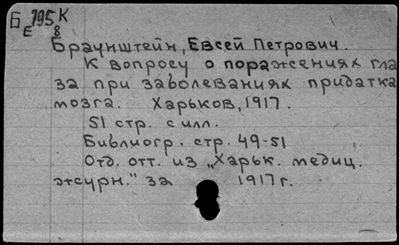 Б 195 К
Е 8
Браунштейн, Евсей Петрович.
К вопросу о поражениях гла
за при заболеваниях придатка
мозга. Харьков, 1917.
51 стр. с илл.
Библиогр. стр. 49-51
Отд. отт. из „Харьк. медиц.
журн." за 1917 г.